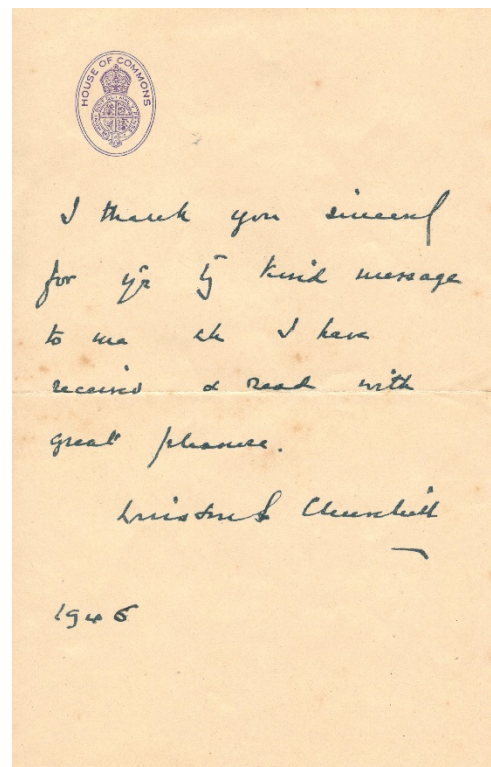 HOUSE OF COMMONS
I thank you sincerely
for yr vy kind message
to me wh I have
received & read with
great pleasure.
Winston S. Churchill